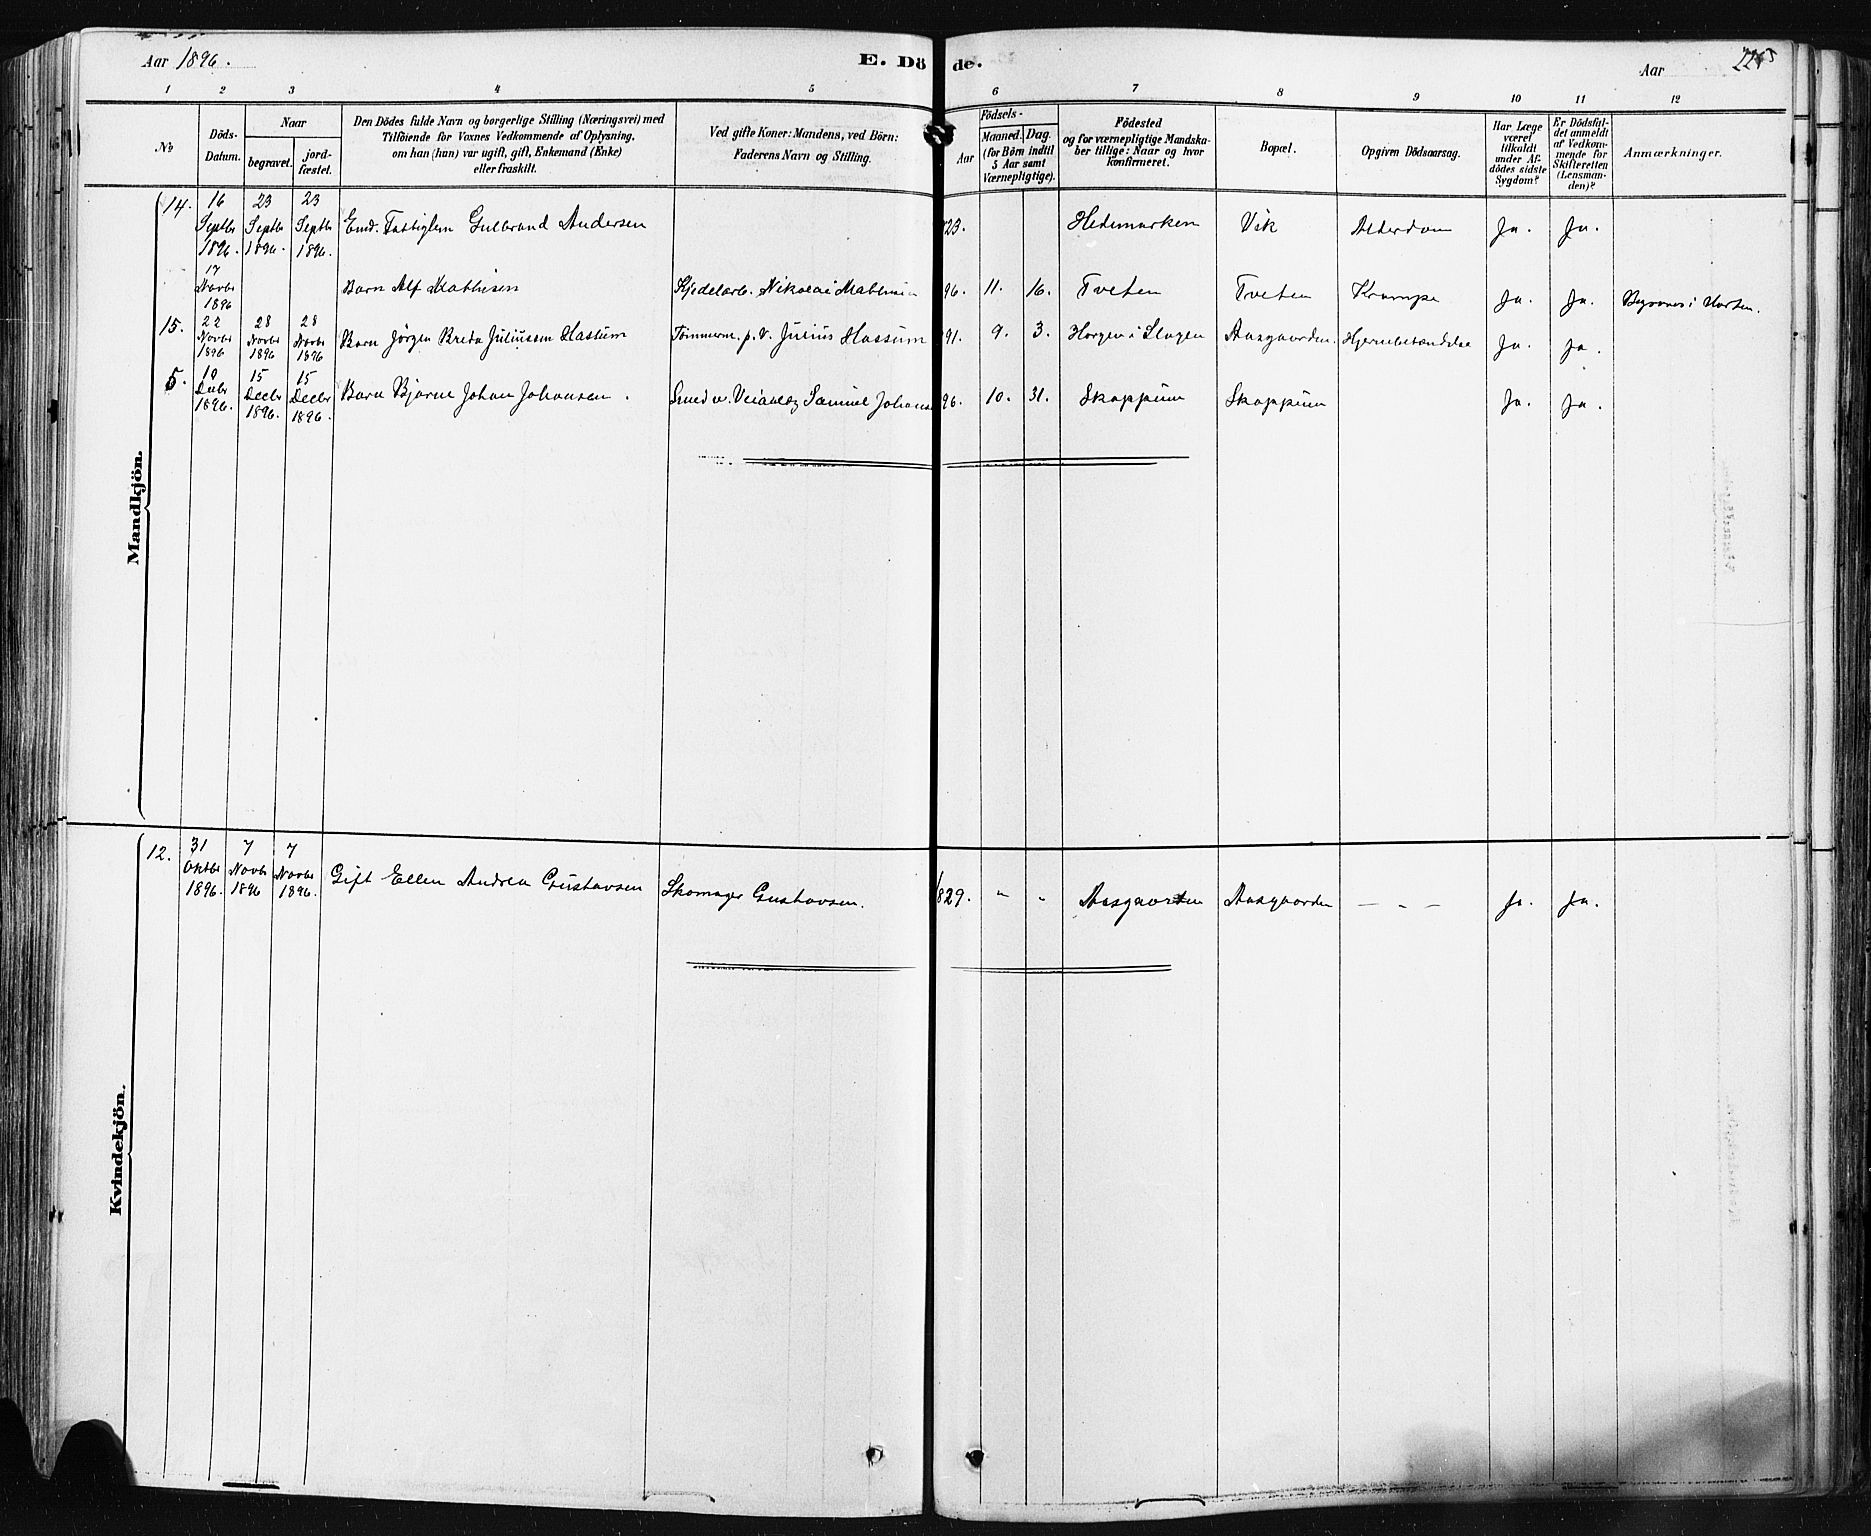 Aar 1896.
E. Döde.
Aar
225
1 2 3 4 5 6 7 8 9 10 11 12
No
Döds-Datum.
Naar
begravet.
jord-fæstet.
Den Dödes fulde Navn og borgerlige Stilling (Næringsvei) med
Tilföiende for Voxnes Vedkommende af Oplysning,
om han (hun) var ugift, gift, Enkemand (Enke)
eller fraskilt.
Ved gifte Koner: Mandens, ved Börn:
Faderens Navn og Stilling.
Födsels-
Aar
Maaned. Dag.
(for Börn indtil
5 Aar samt
Værnepligtige).
Födested
og for værnepligtige Mandska-
ber tillige: Naar og hvor
konfirmeret.
Bopæl.
Opgiven Dödsaarsag.
Har Læge
været
tilkaldt
under Af-
dödes sidste
Sygdom?
Er Dödsfal-
det anmeldt
af Vedkom-
mende for
Skifteretten
(Lensman-
den)?
Anmærkninger.
Mandkjön.
14. 16 Septbr 1896. 23 Septbr 1896. 23 Septbr 1896. Gulbrand Andersen 23. Hedemarken Vik Alderdom Ja. Ja.
17 Novbr 1896 Barn Alf Mathisen Kjedelarb. Nikolai Mathisen 96. 11. 16. Tveten Tveten Krampe Ja. Ja. i Horten.
15. 22 Novbr 1896 28 Novbr 1896 28 Novbr 1896 Barn Jörgen Breda Juliussen Hassum Tömmerm. p. V. Julius Hassum 91. 9. 3. Horgen i Slagen Aasgaarden. Hjernebetændelse Ja. Ja.
5. 10 Decbr 1896. 15 Decbr 1896. 15 Decbr 1896. Barn Bjarne Johan Johansen. Smed v. Samuel Johans 96. 10. 31. Skoppum Skoppum Ja. Ja.
Kvindekjön.
12. 31 Oktbr 1896. 7 Novbr 1896 7 Novbr 1896. Gift Ellen Andrea Gustavsen Skomager Gustavsen. 1829. " " Aasgaarden Aasgaarden — - — Ja. Ja.